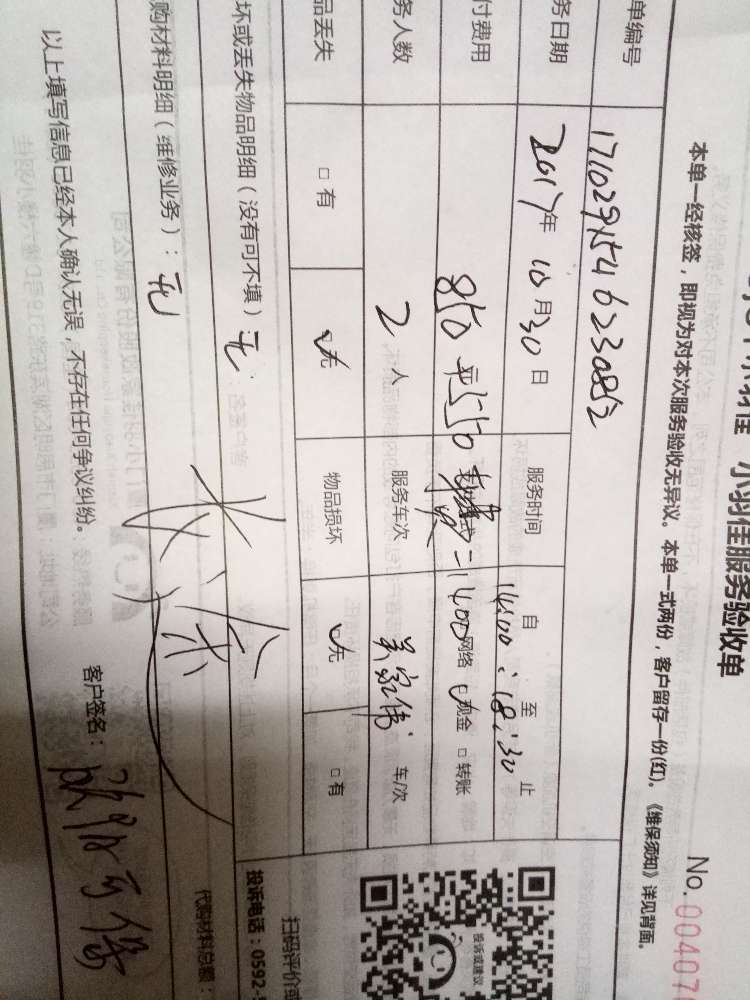 小羽佳服务验收单
No. 00407
本单一经核签，即视为对本次服务验收无异议。本单一式两份，客户留存一份(红)。《维保须知》详见背面。
单编号 17102915462308
务日期 2017年10月30日 服务时间 自14:00至18:30止
付费用 850 =1400 网络 现金 □转账
务人数 2人 服务车次 车/次
品丢失 □有 无 物品损坏 无 □有
坏或丢失物品明细（没有可不填）：无
购材料明细（维修业务）：无
代购材料总额：
以上填写信息已经本人确认无误，不存在任何争议纠纷。
客户签名：
投诉或建议
扫码评价或
投诉电话：0592-